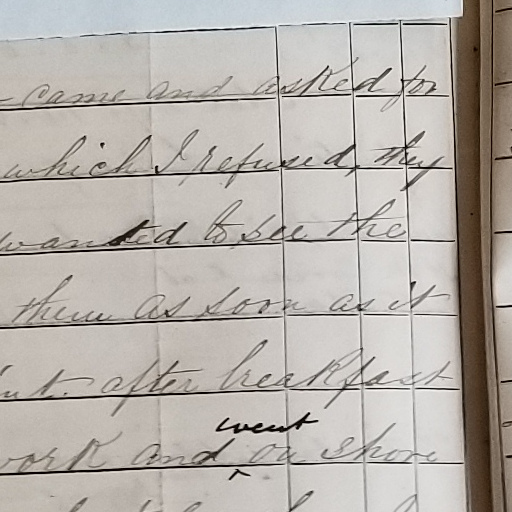 came and asked for
which I refused, they
wanted to see the
them as soon as it
after breakfast
work and went on shore